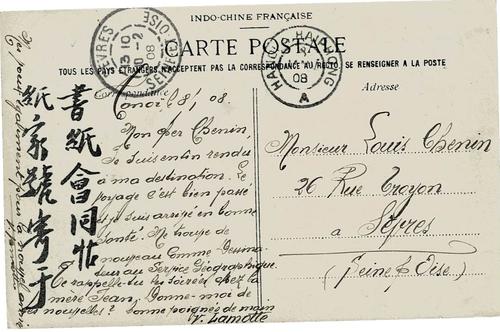 INDO-CHINE FRANÇAISE
CARTE POSTALE
TOUS LES PAYS ÉTRANGERS N'ACCEPTENT PAS LA CORRESPONDANCE AU RECTO. SE RENSEIGNER A LA POSTE
Correspondance
Adresse
SÈVRES
SEINE-ET-OISE
08
HAIPHONG
08
A
Hanoï 8/1 08.
Mon cher Chenin,
Je suis enfin rendu
à ma destination. Le
voyage s'est bien passé
et je suis arrivé en bonne
santé. Me trouve de
nouveau comme Dessina-
teur au Service Géographique.
Te rappelle-tu les soirées chez la
mère Jean, donne-moi de
tes nouvelles? bonne poignée de main
V. Lamotte
Monsieur Louis Chenin
26 Rue Troyon
à Sèvres
(Seine & Oise)
書紙會同帖
紙家號寄于